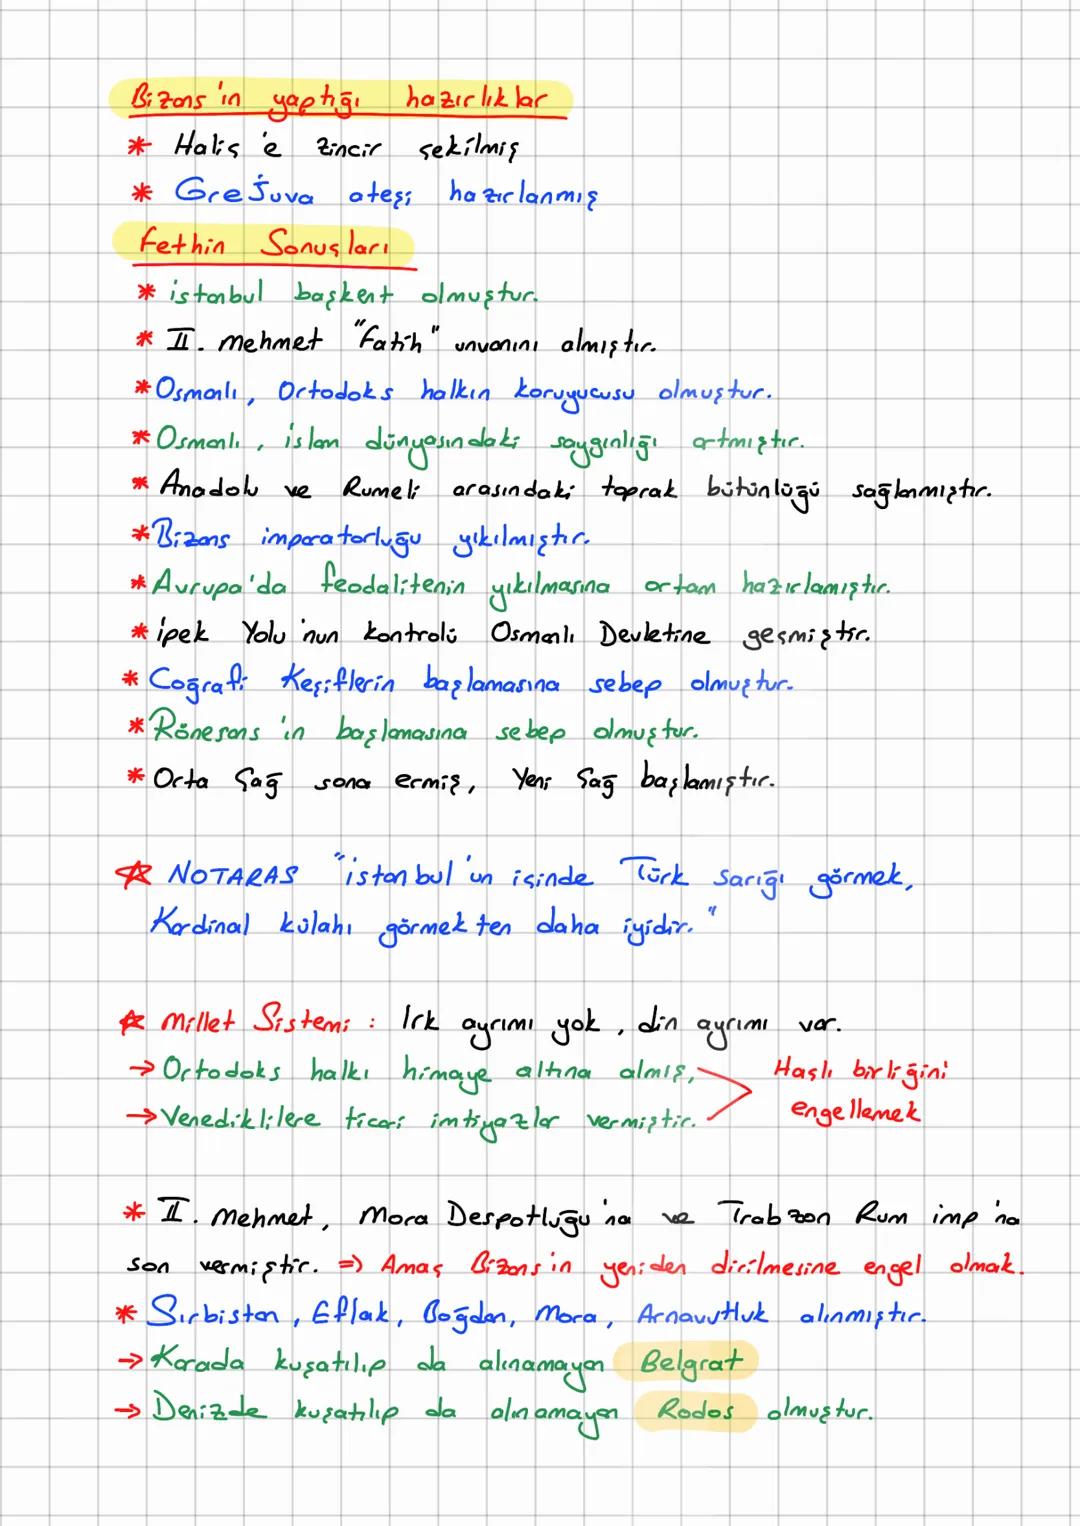 Bizans'ın yaptığı hazırlıklar
* Haliç'e zincir çekilmiş
* Grejuva ateşi hazırlanmış
Fethin Sonuçları
* istanbul başkent olmuştur.
* II. Mehmet "Fatih" unvanını almıştır.
* Osmanlı, Ortodoks halkın koruyucusu olmuştur.
* Osmanlı, islam dünyasındaki saygınlığı artmıştır.
* Anadolu ve Rumeli arasındaki toprak bütünlüğü sağlanmıştır.
* Bizans imparatorluğu yıkılmıştır.
* Avrupa'da feodalitenin yıkılmasına ortam hazırlamıştır.
* ipek Yolu'nun kontrolü Osmanlı Devletine geçmiştir.
* Coğrafi Keşiflerin başlamasına sebep olmuştur.
* Rönesans'ın başlamasına sebep olmuştur.
* Orta Çağ sona ermiş, Yeni Çağ başlamıştır.
☆ NOTARAS "istanbul'un içinde Türk sarığı görmek,
Kardinal külahı görmekten daha iyidir."
☆ Millet Sistemi : Irk ayrımı yok, din ayrımı var.
→ Ortodoks halkı himaye altına almış, Haçlı birliğini
→ Venediklilere ticari imtiyazlar vermiştir. engellemek
* II. Mehmet, Mora Despotluğu'na ve Trabzon Rum imp'na
son vermiştir. => Amaç Bizans'ın yeniden dirilmesine engel olmak.
* Sırbistan, Eflak, Boğdan, Mora, Arnavutluk alınmıştır.
→ Karada kuşatılıp da alınamayan Belgrat
→ Denizde kuşatılıp da alınamayan Rodos olmuştur.